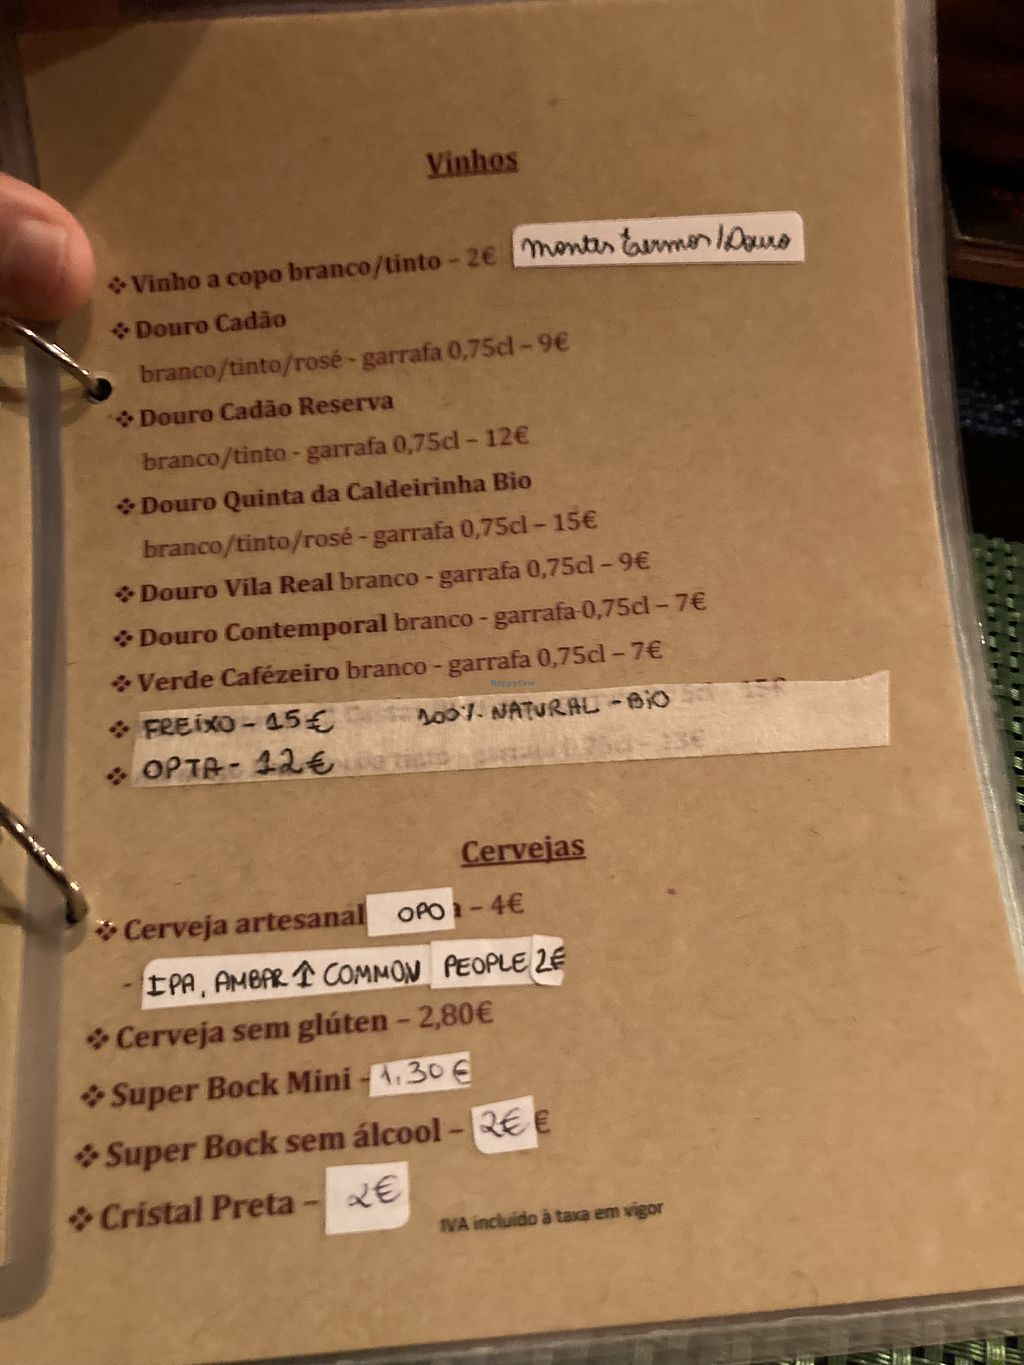 Vinhos
❖ Vinho a copo branco/tinto – 2€ Montes Ermos/Douro
❖ Douro Cadão
branco/tinto/rosé - garrafa 0,75cl – 9€
❖ Douro Cadão Reserva
branco/tinto - garrafa 0,75cl – 12€
❖ Douro Quinta da Caldeirinha Bio
branco/tinto/rosé - garrafa 0,75cl – 15€
❖ Douro Vila Real branco - garrafa 0,75cl – 9€
❖ Douro Contemporal branco - garrafa 0,75cl – 7€
❖ Verde Cafézeiro branco - garrafa 0,75cl – 7€
HappyCow
❖ FREIXO - 15€ 100% NATURAL - BiO
❖ OPTA - 12€
Cervejas
❖ Cerveja artesanal OPO – 4€
- IPA, AMBAR ↑ COMMON PEOPLE 2€
❖ Cerveja sem glúten – 2,80€
❖ Super Bock Mini - 1.30€
❖ Super Bock sem álcool – 2€ €
❖ Cristal Preta – 2€
IVA incluído à taxa em vigor